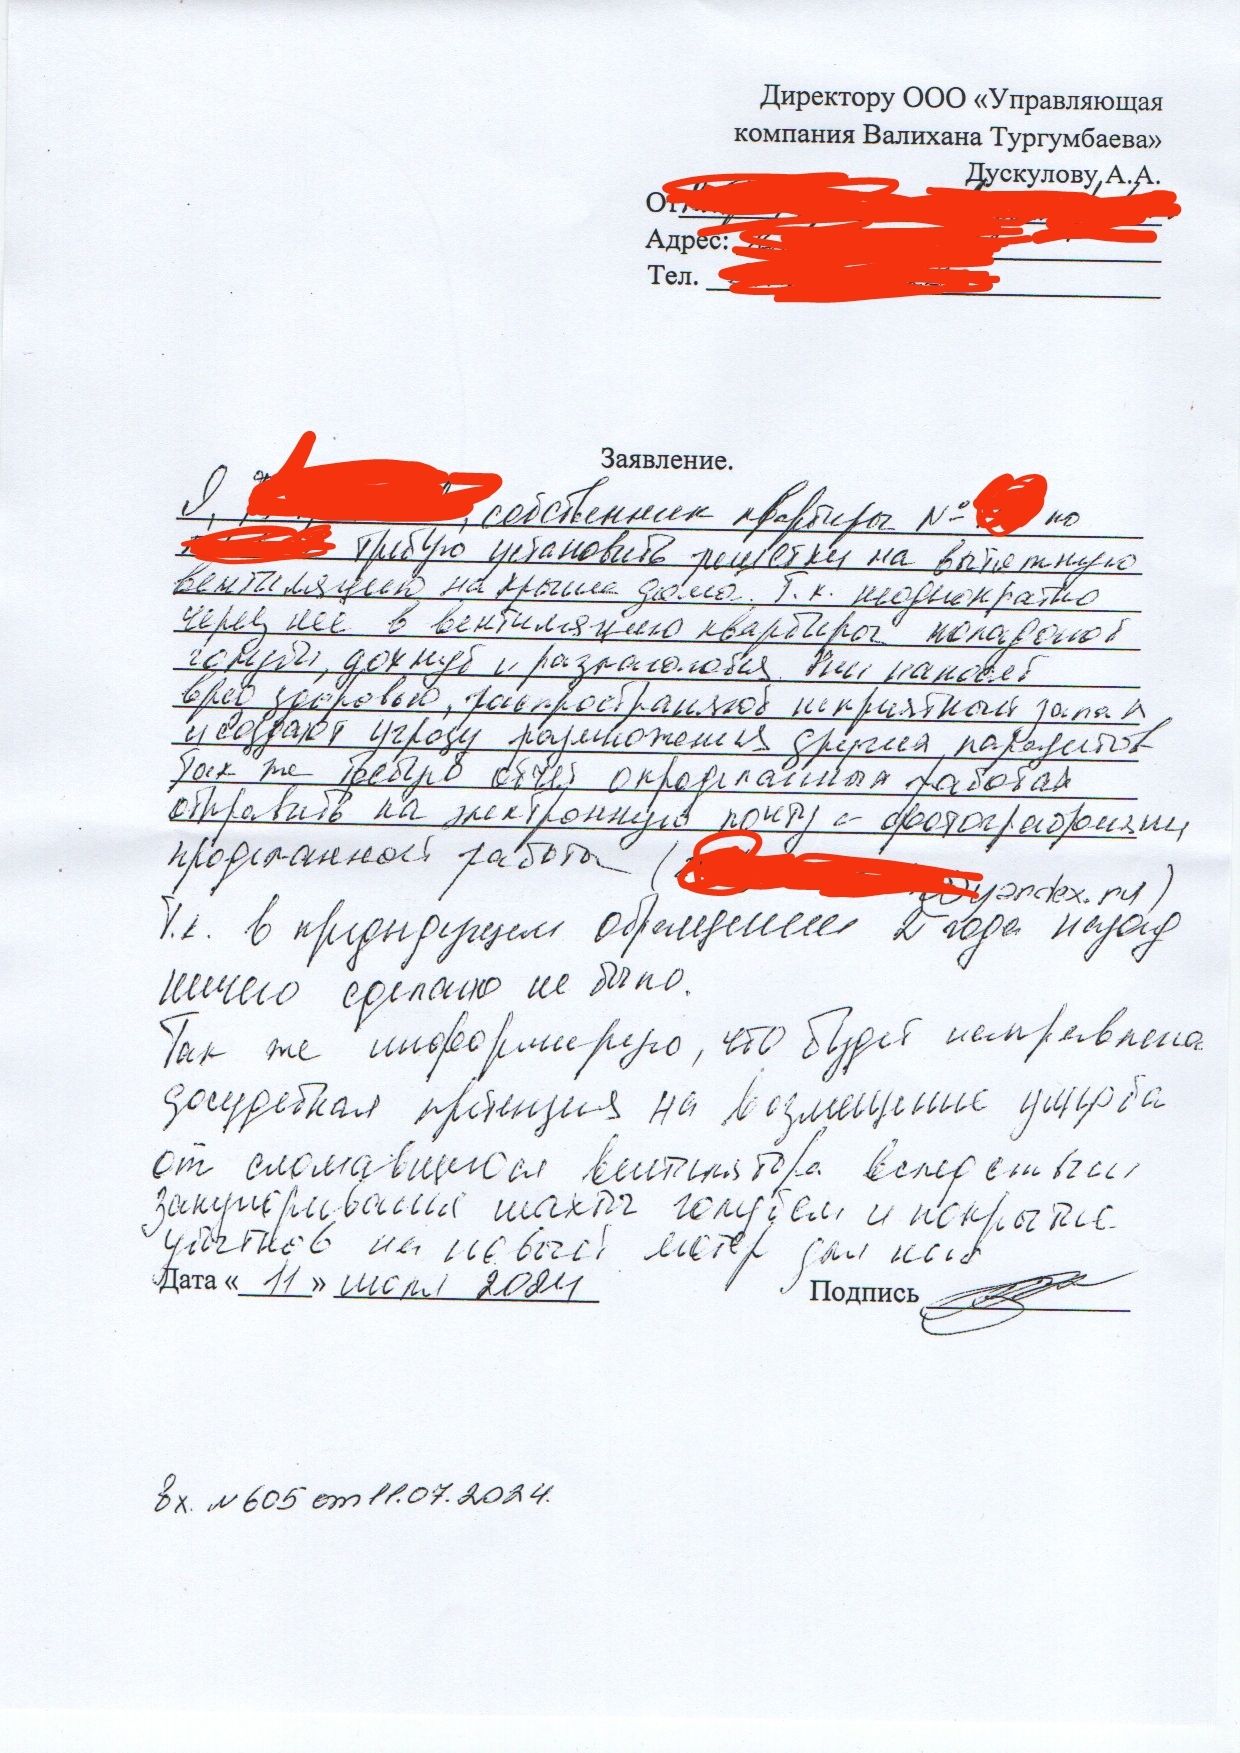 Директору ООО «Управляющая
компания Валихана Тургумбаева»
Дускулову А.А.
От
Адрес:
Тел.
Заявление.
Я, , собственник квартиры № по
требую установить решетки на вытяжную
вентиляцию на крыше дома. Т.к. неоднократно
через неё в вентиляцию квартиры попадают
голуби, дохнут и разлагаются. Они наносят
вред здоровью, распространяют неприятный запах
и создают угрозу размножения других паразитов
Так же требую отчет о проделанных работах
отправить на электронную почту с фотографиями
проделанной работы ( @yandex.ru)
Т.к. в предыдущем обращении 2 года назад
ничего сделано не было.
Так же информирую, что будет направлена
досудебная претензия на возмещение ущерба
от сломавшегося вентилятора вследствии
закупоривания шахты голубем и покрытие
убытков на новый
Дата « 11 » июля 2024 Подпись
Вх. №605 от 11.07.2024.